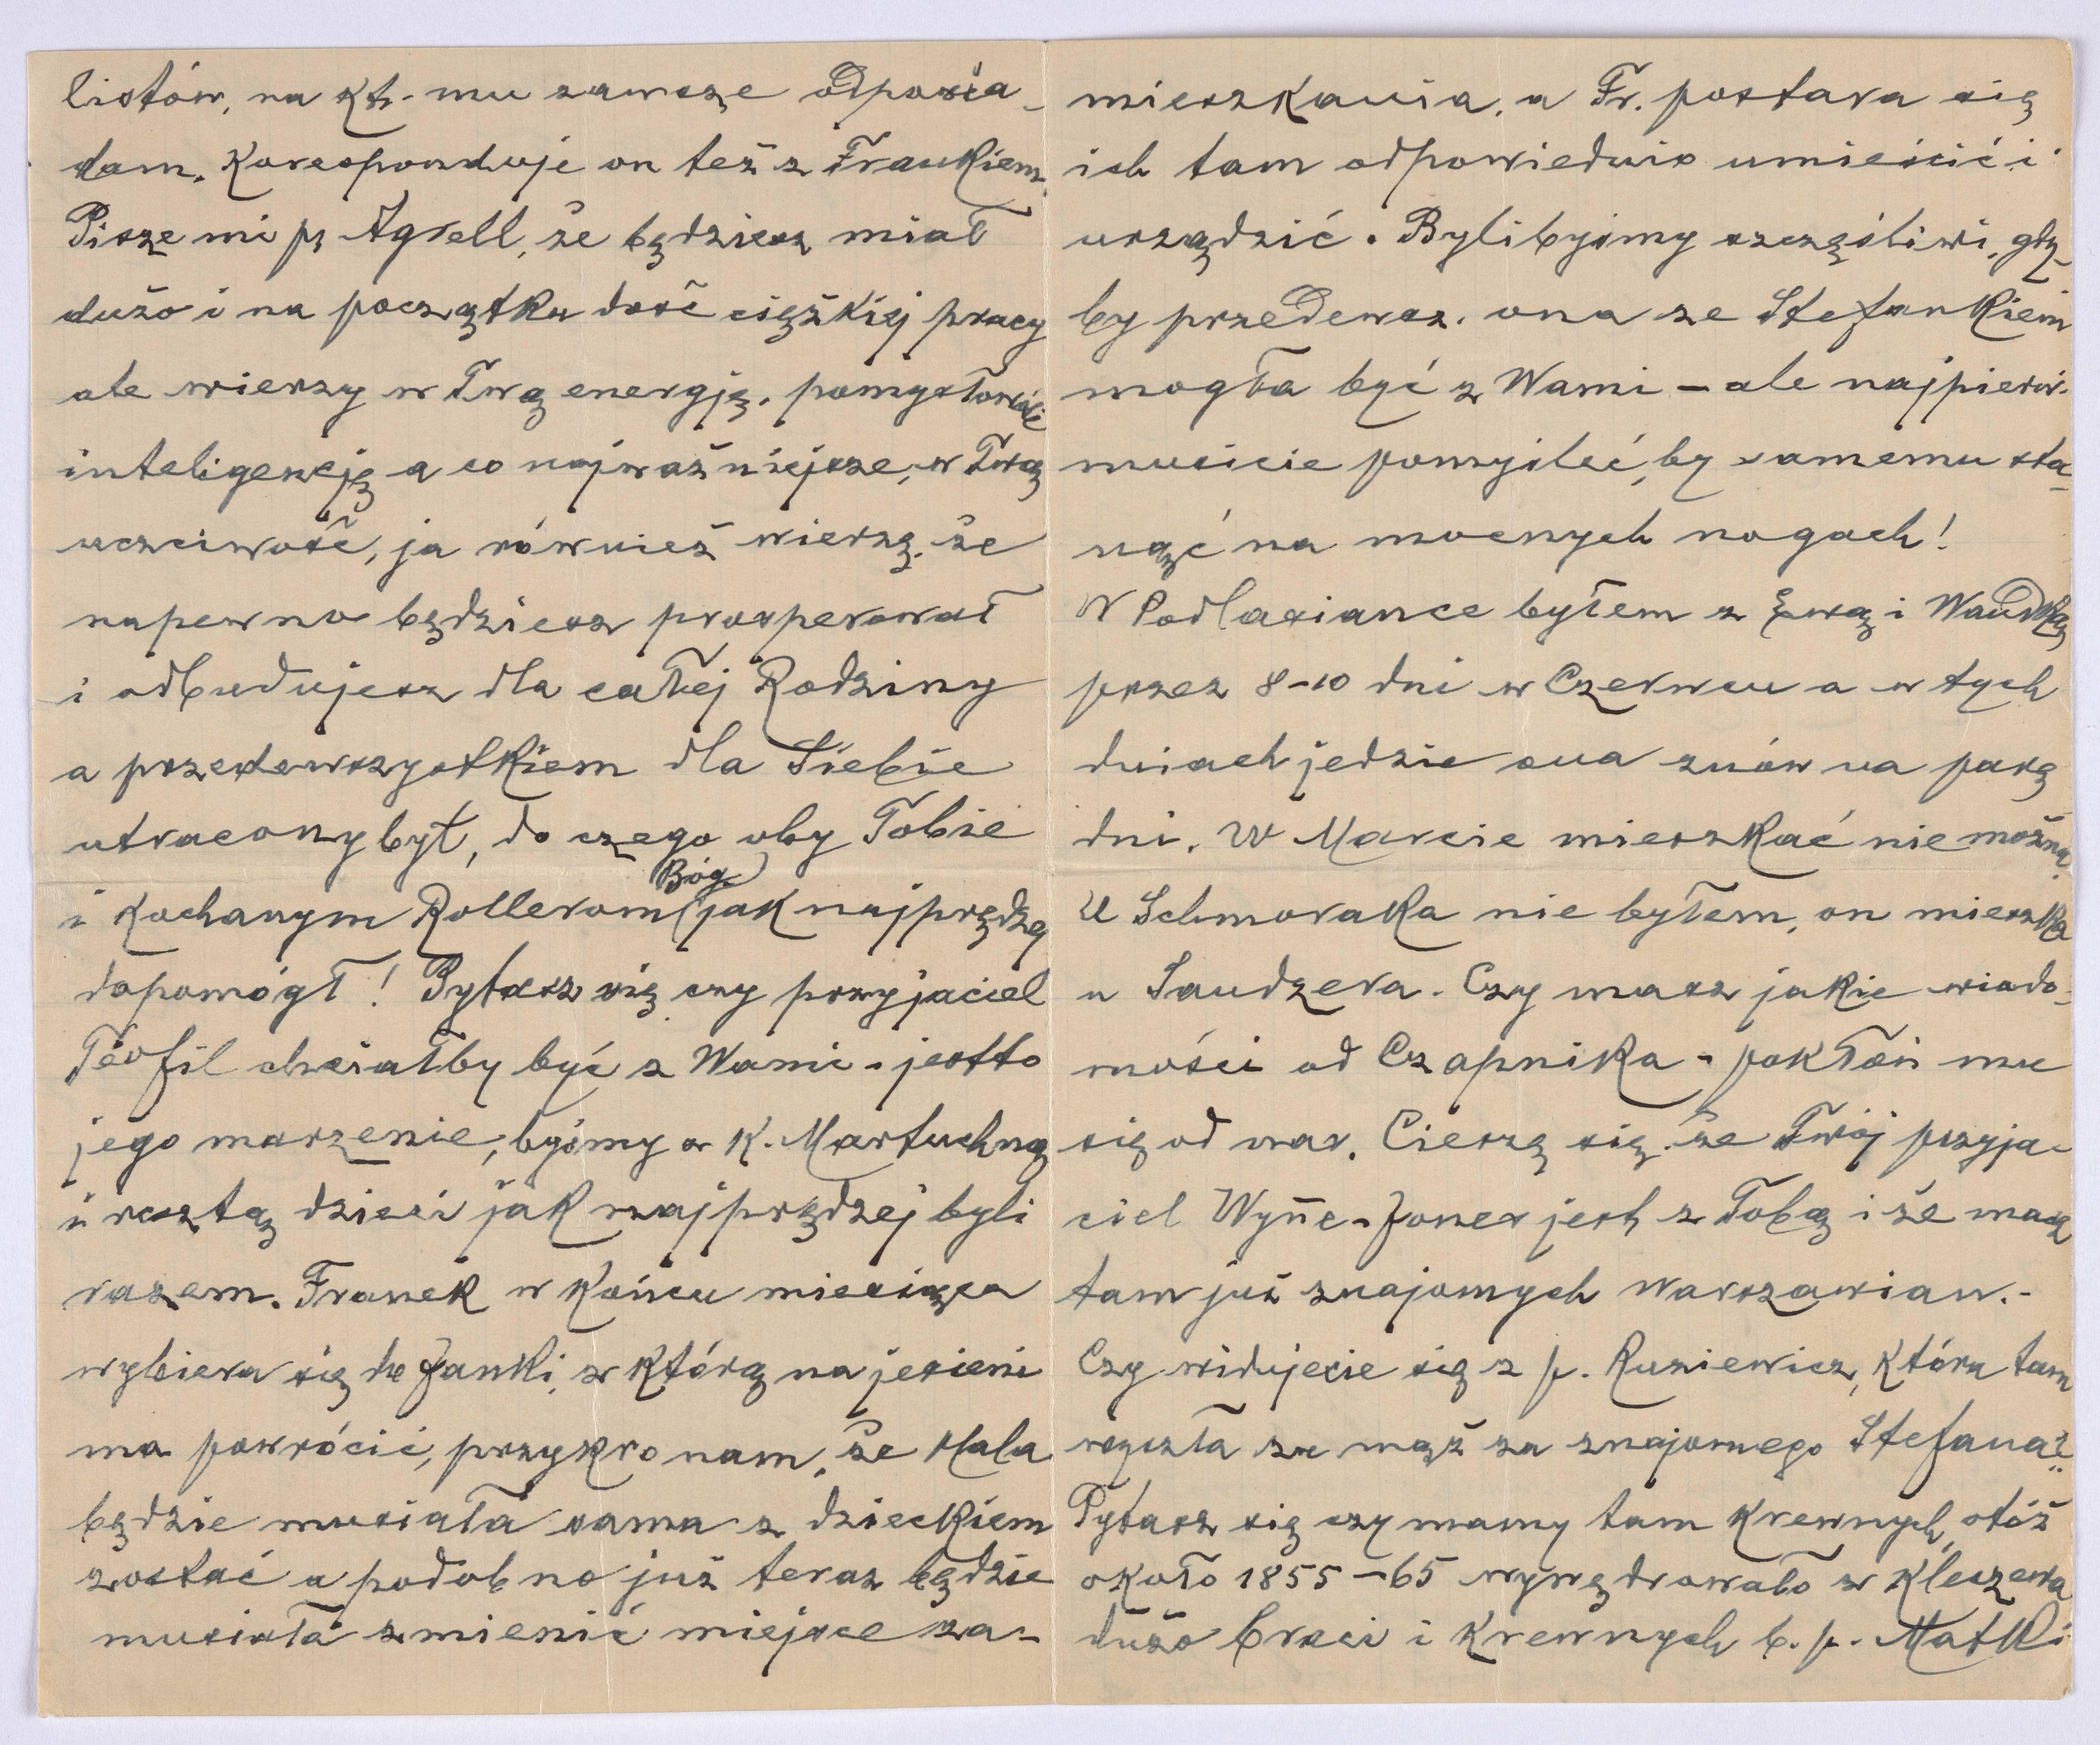 listów, na kt. mu zawsze odpowia-
dam. Koresponduje on też z Frankiem.
Pisze mi p. Agrell, że będziesz miał
dużo i na początku dość ciężkiej pracy
ale wierzy w Twą energję, pomysłowość
inteligencję a co najważniejsze, w Twą
uczciwość, ja również wierzę, że
napewno będziesz prosperował
i odbudujesz dla całej Rodziny
a przedewszystkiem dla Siebie
utracony byt, do czego oby Tobie
i kochanym Rollerom (Bóg) jak najprędzej
dopomógł! Pytasz się czy przyjaciel
Teofil chciałby być z Wami - jest to
jego marzenie, byśmy z K. Martuchną
i resztą dzieci jak najprędzej byli
razem. Franek w końcu miesiąca
wybiera się do Janki, z którą na jesieni
ma powrócić, przykro nam, że Hala
będzie musiała sama z dzieckiem
zostać a podobno już teraz będzie
musiała zmienić miejsce za-
mieszkania, a Fr. postara się
ich tam odpowiednio umieścić i
urządzić. Bylibyśmy szczęśliwi, gdy-
by przedewsz. ona ze Stefankiem
mogła być z Wami - ale najpierw
musicie pomyśleć, by samemu sta-
nąć na mocnych nogach!
W Podlasiance byłem z Ewą i Wandką
przez 8-10 dni w Czerwcu a w tych
dniach jedzie ona znów na parę
dni. W Marcie mieszkać nie można.
U Schmoraka nie byłem, on mieszka
u Saudzera. Czy masz jakie wiado-
mości od Czapnika - pokłoń mu
się od nas. Cieszę się, że Twój przyja-
ciel Wyne-Jones jest z Tobą i że masz
tam już znajomych Warszawian.-
Czy widujecie się z p. Rusiewicz, która tam
wyszła za mąż za znajomego Stefana?
Pytasz się czy mamy tam krewnych, otóż
około 1855-65 wywędrowało z Kleszewa
dużo braci i krewnych b. p. Matki